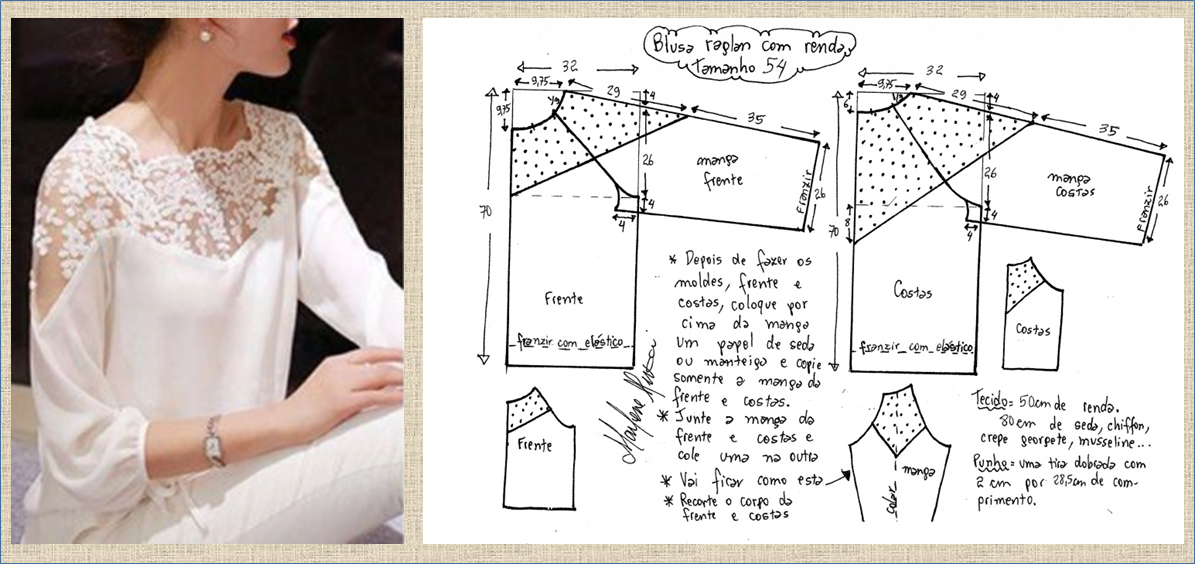 Blusa raglan com renda,
tamanho 54
32
9,75
29
4
9,75
35
26
manga
frente
franzir
26
4
4
70
Frente
franzir com elástico
32
9,75
29
4
6
35
26
manga
costas
franzir
26
4
4
8
70
Costas
franzir com elástico
* Depois de fazer os
moldes, frente e
costas, coloque por
cima da manga
um papel de seda
ou manteiga e copie
somente a manga da
frente e costas.
* Junte a manga da
frente e costas e
cole uma na outra
* Vai ficar como esta
* Recorte o corpo da
frente e costas
Frente
Costas
manga
colar
Tecido= 50cm de renda.
80cm de seda, chiffon,
crepe georpete, musseline...
Punho= uma tira dobrada com
2 cm por 28,5cm de com-
primento.